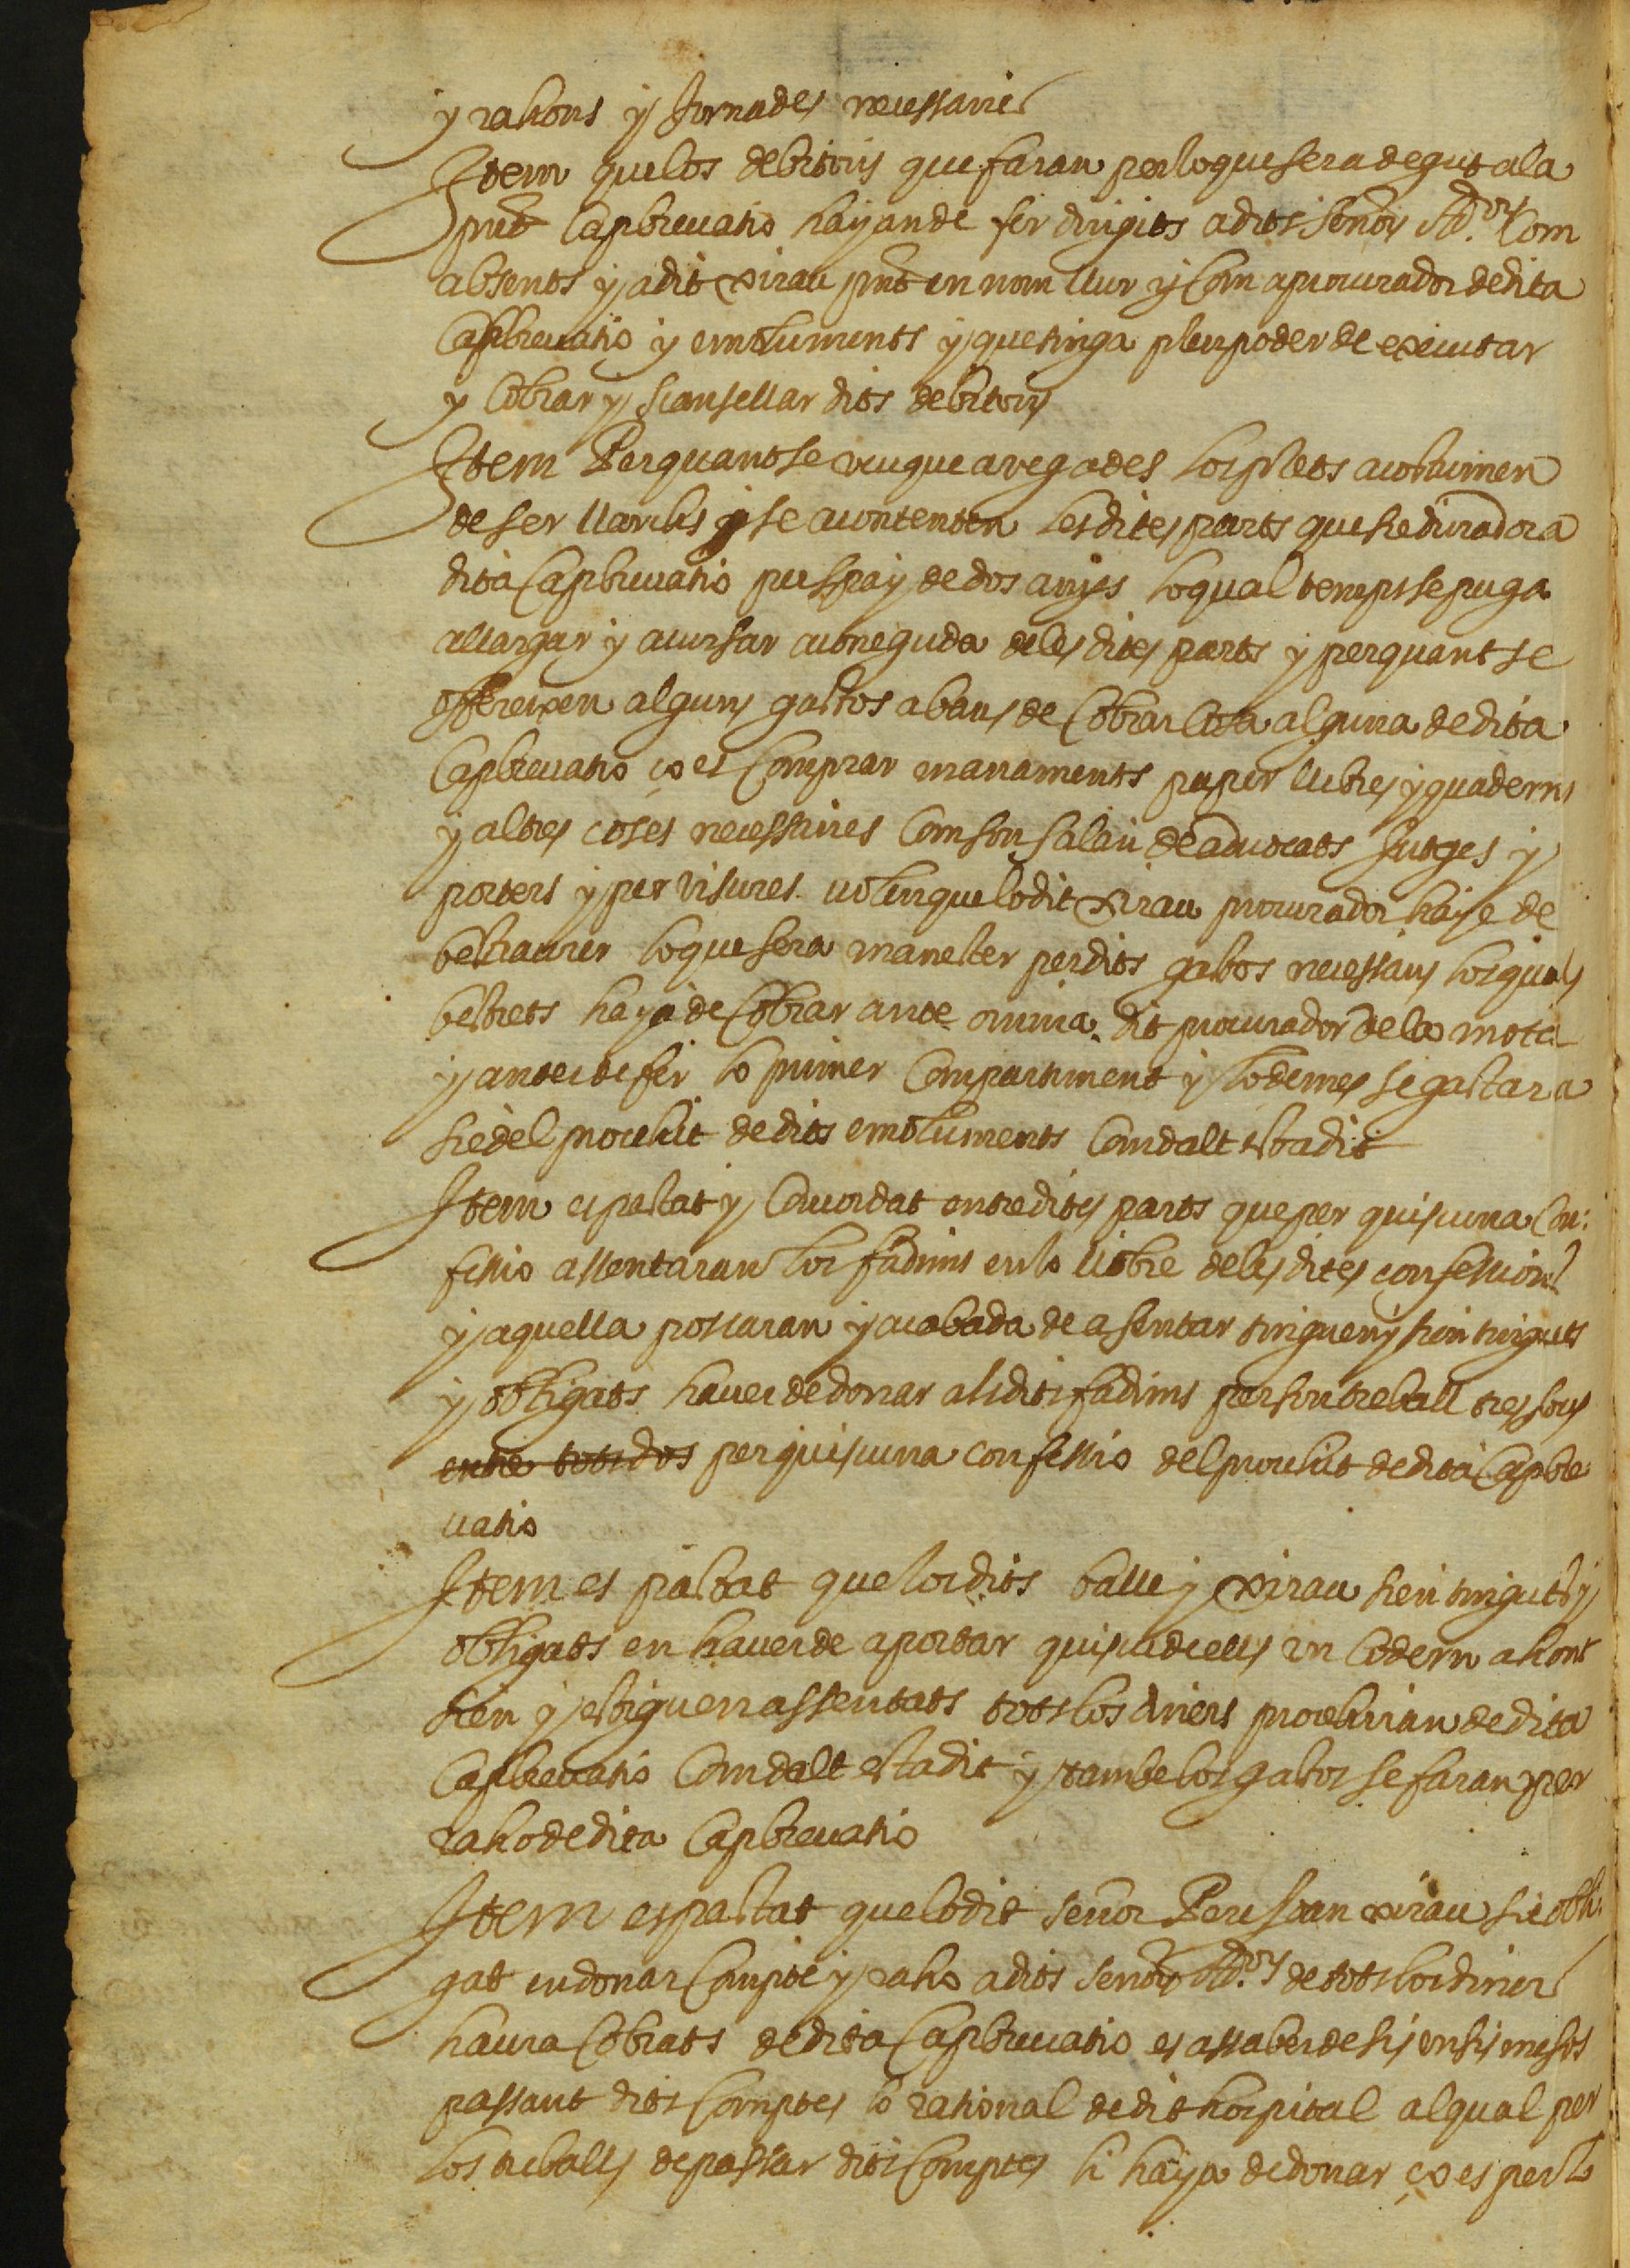 y rahons y Jornades necessaries
Item que los debitoris que faran per lo que sera degut a la
pnt Capbreuatio hajan de ser dirigits a dits señors Ad.ors Com
absents y a dit xirau pnt en nom llur y Com a procurador de dita
Capbreuatio y emoluments y que tinga plen poder de executar
y Cobrar y Cansellar dits debitoris
Item Per quant se veu que a vegades los plets acostumen
de ser llarchs y se acontenten les dites parts que sie duradora
dita Capbreuatio per spay de dos anys lo qual temps se puga
allargar y acursar a coneguda de les dites parts y per quant se
offereixen alguns gastos abans de Cobrar Cosa alguna de dita
Capbreuatio ço es Comprar manaments paper llibres y quaderns
y altres coses necessaries Com son salari de aduocats Jutges y
porters y per visures. volen que lo dit xirau procurador haje de
bestraurer lo que sera manester per dits gastos necessaris los quals
bestrets haja de Cobrar ante omnia dit procurador de la mota
y antes de fer lo primer Compartiment y lo demes se gastara
sie del procehit de dits emoluments Com dalt esta dit
Item es pactat y Concordat entre dites parts que per quiscuna Con:
fessio assentaran los fadrins en lo llibre de les dites confessions
y aquella posaran y acabada de asentar tinguen y sien tinguts
y obligats hauer de donar als dits fadrins per son treball tres sous
entre tots dos per quiscuna confessio del procehit de dita Capbre
uatio
Item es pactat que los dits Batlle y xirau sien tinguts y
obligats en hauer de aportar quiscu de ells un Codern ahont
sien y estiguen assentats tots los diners procehiran de dita
Capbreuatio Com dalt esta dit y tambe los gastos se faran per
raho de dita Capbreuatio
Item es pactat que lo dit señor Pere Joan xirau sie obli
gat en donar Compte y raho a dits señors Ad.ors de tots los diners
haura Cobrats de dita Capbreuatio es assaber de sis en sis mesos
passant dits Comptes lo rational de dit hospital al qual per
los treballs de passar dits Comptes li haja de donar ço es per lo